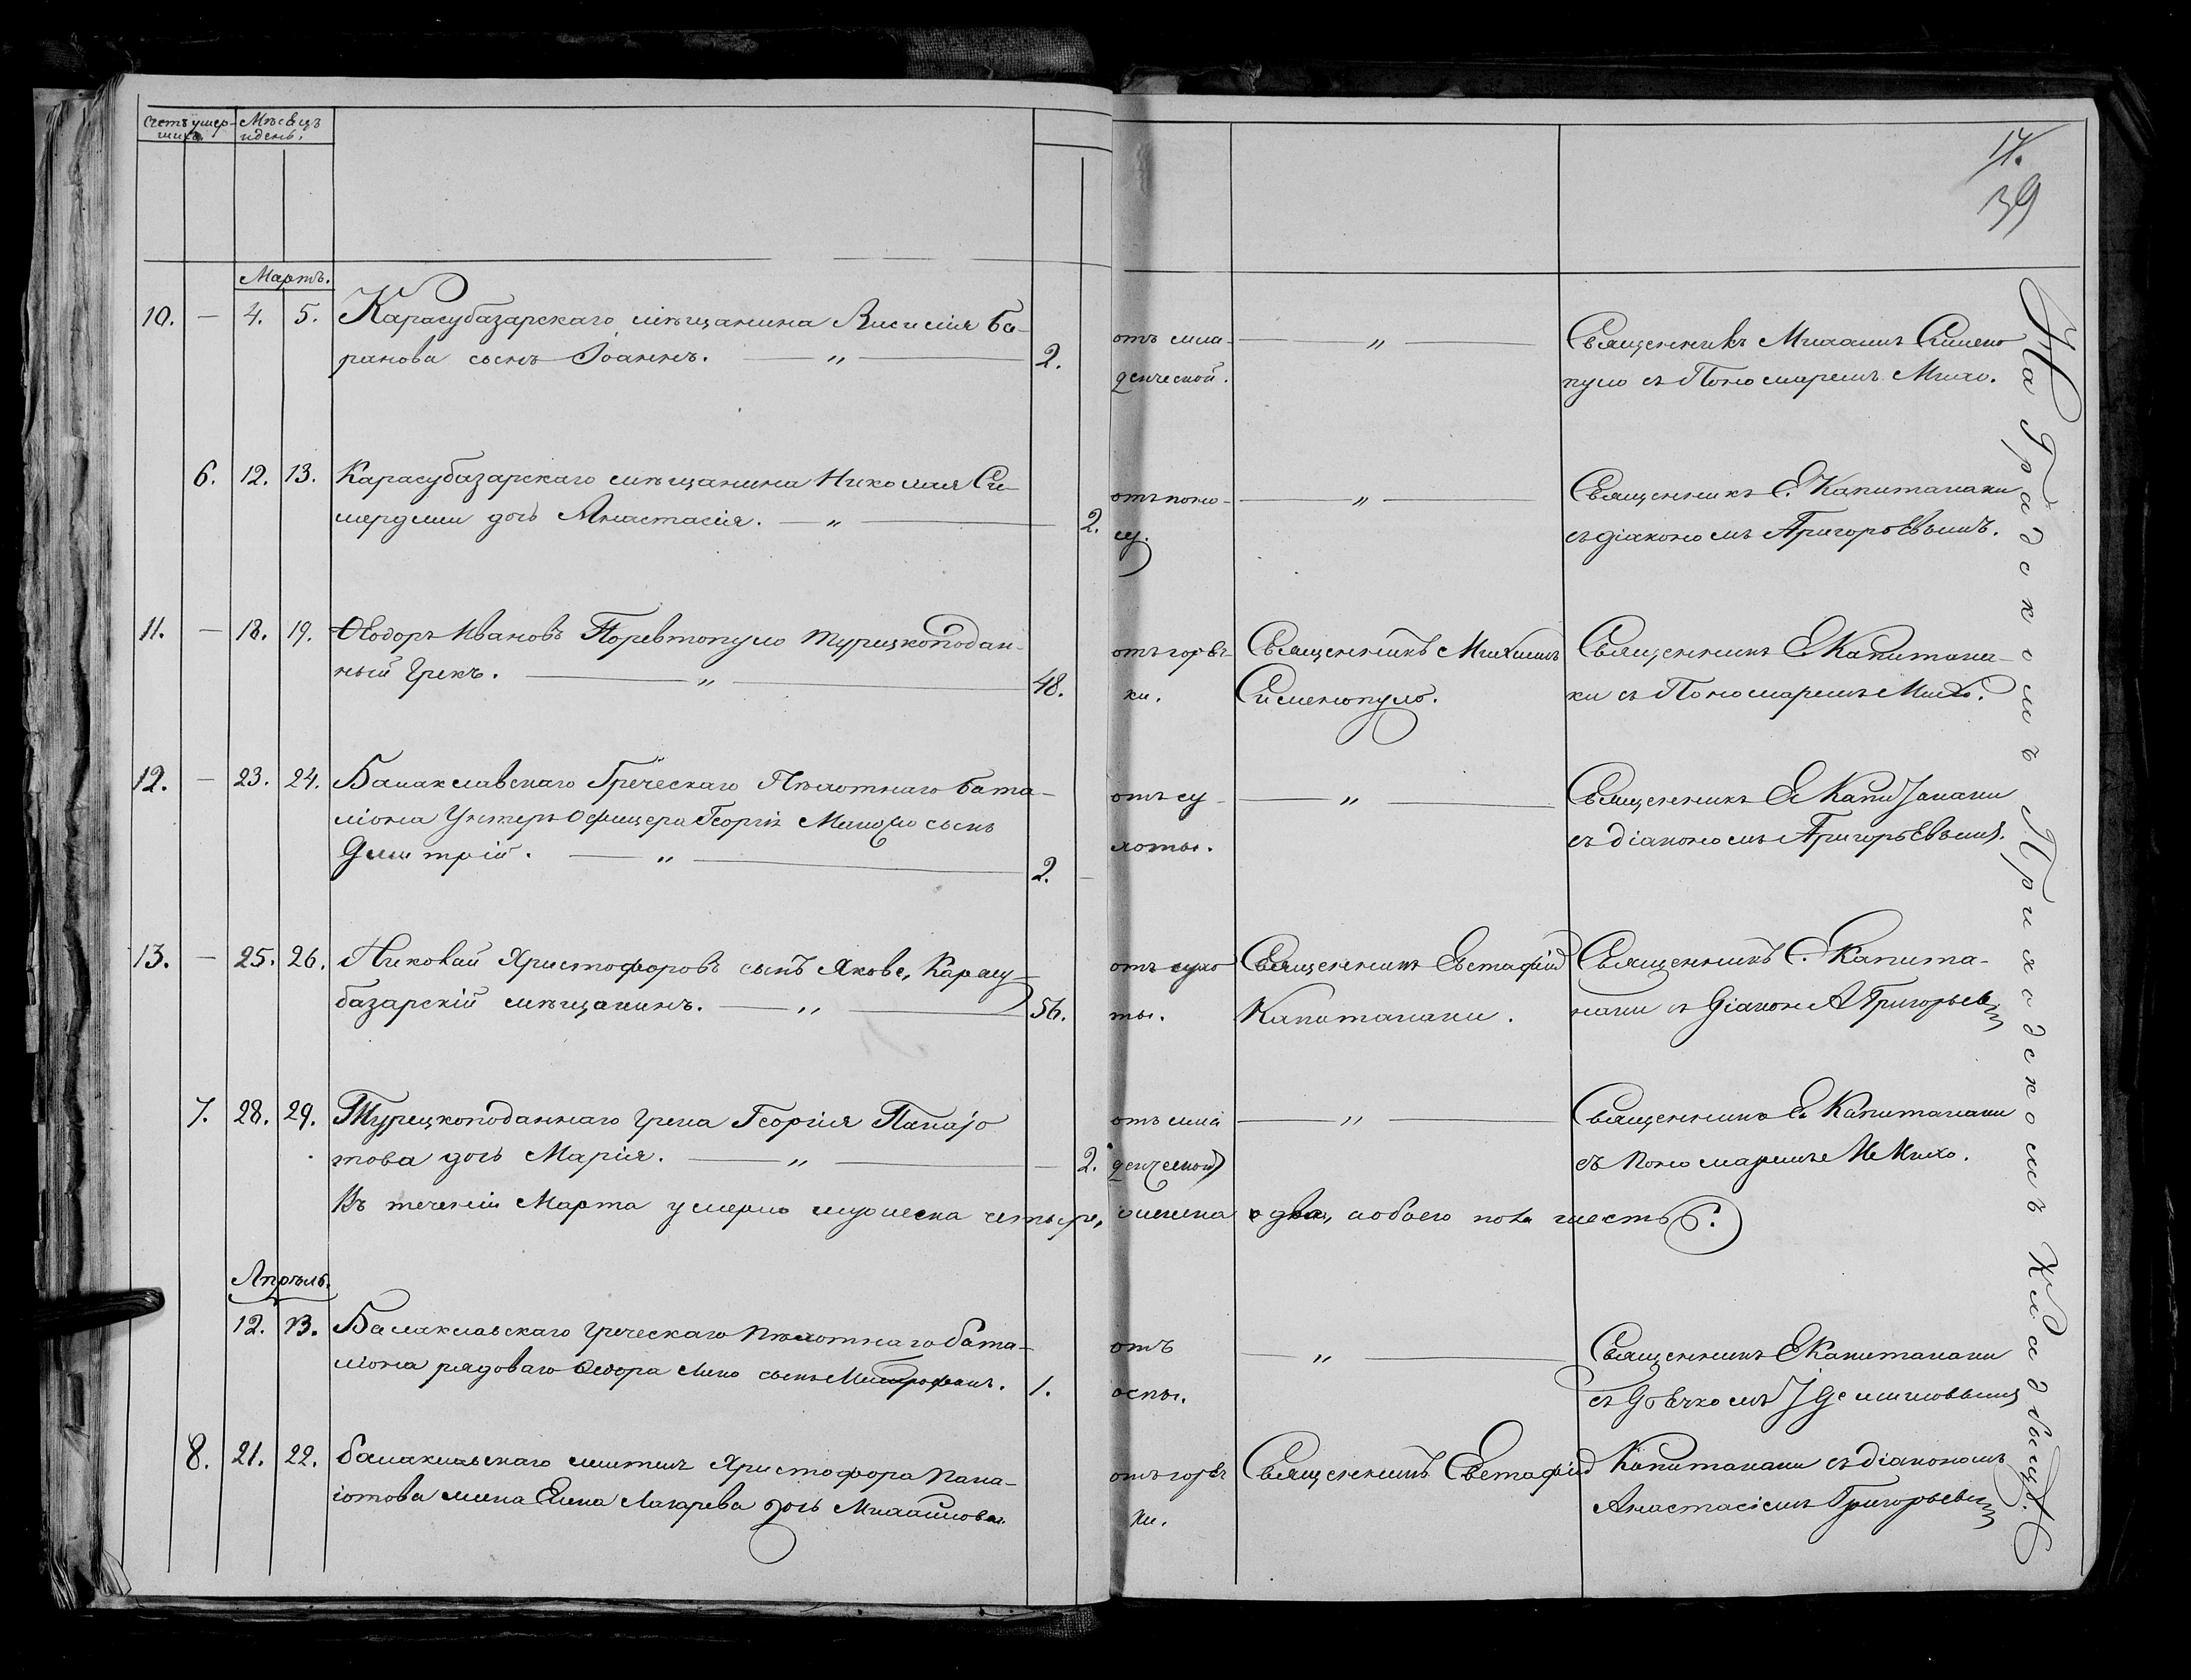 Счетъ умер-
шихъ.
Мѣсяцъ
и день.
17.
39
Мартъ.
10. — 4. 5. Карасубазарскаго мѣщанина Ба-
ранова сынъ Іоаннъ. — " — 2.
отъ мла-
денческой.
— " —
Священникъ Михаилъ Симено
пуло съ Пономаремъ Михо.
6. 12. 13. Карасубазарскаго мѣщанина Николая Си-
мерджи дочь Анастасія. — " — 2.
отъ поно-
су.
— " —
Священникъ Е. Капитанаки
съ діакономъ А Григорьевымъ.
11. — 18. 19. Ѳеодоръ Ивановъ Турецкоподан-
ный Грекъ. — " — 48.
отъ горяч-
ки.
Священникъ Михаилъ
Сименопуло.
Священникъ Е Капитана-
ки съ Пономаремъ Михо.
12. — 23. 24. Балаклавскаго Греческаго Пѣхотнаго бата-
ліона Унтеръ Офицера Георгія сынъ
Димитрій. — " — 2. —
отъ су-
хоты.
— " —
Священникъ Е Капитанаки
съ діакономъ А Григорьевымъ.
13. — 25. 26. Николай Христофоровъ сынъ Яковъ, Карасу-
базарскій мѣщанинъ. — " — 56.
отъ сухо
ты.
Священникъ Евстафій
Капитанаки.
Священникъ Е. Капита-
наки съ Діакон А Григорьев
7. 28. 29. Турецкоподаннаго Грека Георгія Панаіо
това дочь Марія. — " — 2.
отъ мла
денческой
— " —
Священникъ Е Капитанаки
съ Пономаремъ И Михо.
Въ теченіи Марта умерло мужеска четыре, женска два, а обоего пола шесть 6.
Апрѣль.
12. 13. Балаклавскаго Греческаго Пѣхотнаго бата-
ліона рядоваго Ѳеодора сынъ Митрофанъ. 1.
отъ
оспы.
— " —
Священникъ Е Капитанаки
съ Дьячкомъ
8. 21. 22. Балаклавскаго Христофора Пана-
іотова жена Елена Лазарева дочь Михайлова.
отъ горяч
ки.
Священникъ Евстафій
Капитанаки съ діакономъ
Анастасіемъ Григорьевым
На Градскомъ Приходскомъ Кладбищѣ.